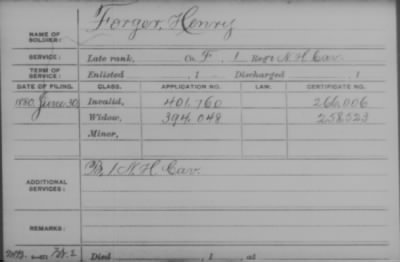 NAME OF SOLDIER: Forger, Henry
SERVICE: Late rank, Co. F, 1 Reg't N.H. Cav.
TERM OF SERVICE: Enlisted , 1 Discharged , 1
DATE OF FILING. CLASS. APPLICATION NO. LAW. CERTIFICATE NO.
1880, June 30 Invalid, 401,760 266,006
Widow, 394,048 258,523
Minor,
ADDITIONAL SERVICES: B, 1 N.H. Cav.
REMARKS:
Died , 1 , at